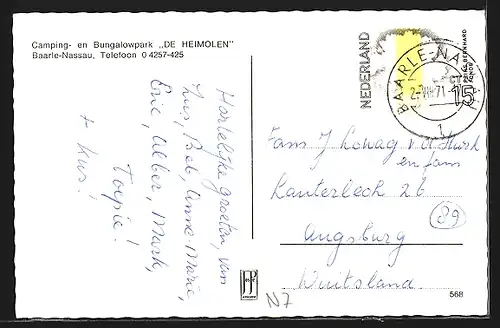 Camping- en Bungalowpark „DE HEIMOLEN"
Baarle-Nassau, Telefoon 0 4257-425
Hartelijke groeten, van
Luus, Bob, Anne Marie,
Eric, Alber, Mark,
Toepie!
+ kus!
NEDERLAND
15
CT
PRINS BERNHARD
FONDS
BAARLE-NASSAU
2-VIII 71
1
Fam J v d Hurk
en fam
Lauterlech 26
Augsburg
Duitsland.
89
N7
568